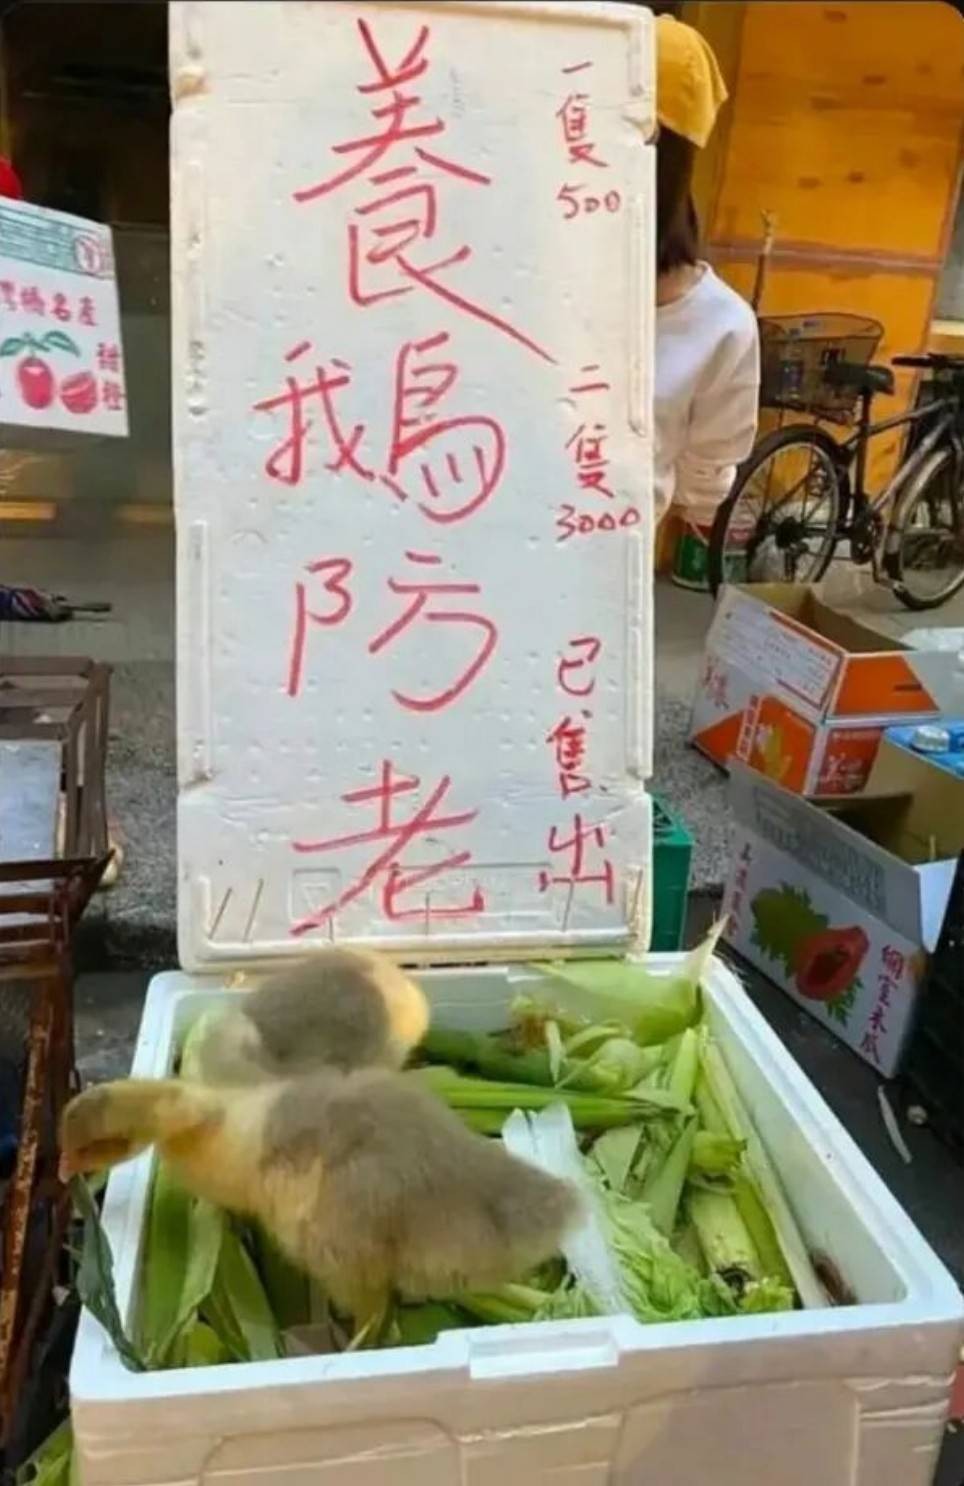 養鵝防老
一隻
500
二隻
3000
已售出
名產
甜橙
木瓜